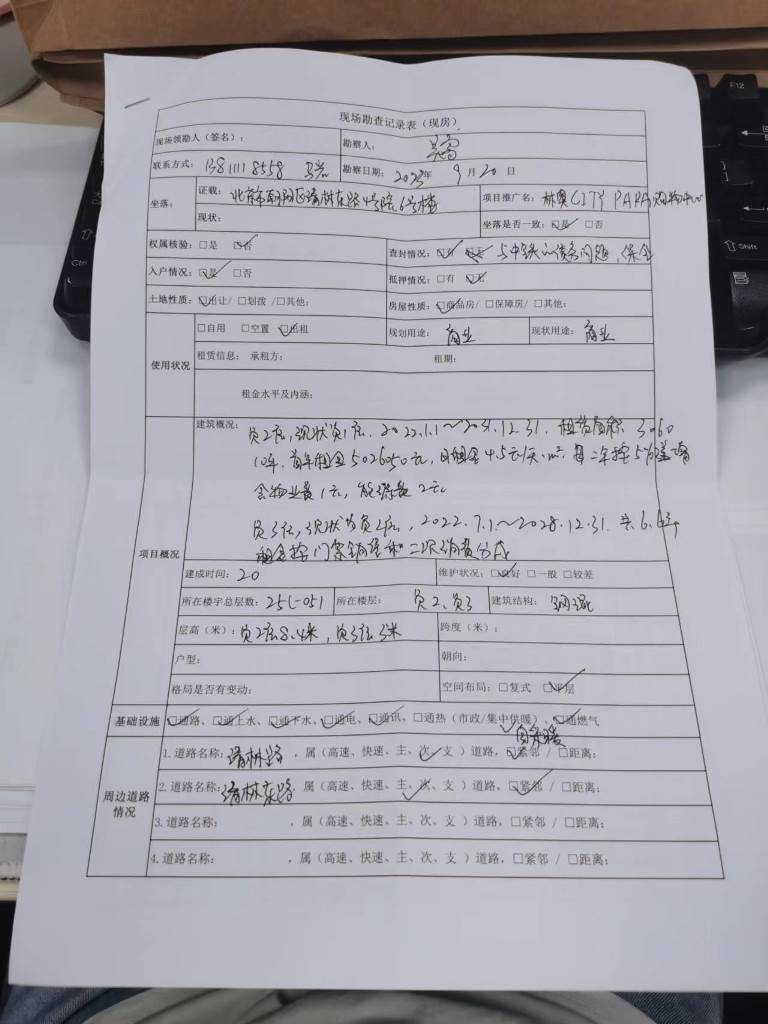 现场勘查记录表（现房）
现场领勘人（签名）： 勘察人：
联系方式： 13811118558 勘察日期： 2023年 9月20日
坐落： 证载： 北京市朝阳区清林东路4号院6号楼 项目推广名： 林奥CITY PARK购物中心
现状： 坐落是否一致：☑是 □否
权属核验：□是 ☑否 查封情况：□有 □无 与中铁的债务问题，保全
入户情况：☑是 □否 抵押情况：□有 ☑无
土地性质：☑出让/ □划拨 /□其他： 房屋性质：☑商品房/ □保障房/ □其他：
使用状况 □自用 □空置 ☑出租 规划用途： 商业 现状用途： 商业
租赁信息： 承租方： 租期：
租金水平及内涵：
项目概况 建筑概况： 负2层，现状负1层，2022.1.1～2031.12.31. 租赁面积 3060
10年，首年租金5026050元，日租金4.5元/天·m²，每二年按5%递增
含物业费1元，能源费2元
负3层，现状为负2层，2022.7.1～2028.12.31 共6.5年
租金按门票销售和二次消费分成
建成时间：20 维护状况：☑良好 □一般 □较差
所在楼宇总层数：25(-05) 所在楼层： 负2、负3 建筑结构： 钢混
层高（米）：负2层8.4米，负3层3米 跨度（米）：
户型： 朝向：
格局是否有变动： 空间布局：□复式 ☑平层
基础设施 ☑通路、☑通上水、☑通下水、☑通电、☑通讯、□通热（市政/集中供暖）、☑通燃气
自采暖
周边道路情况 1.道路名称：清林路 ，属（高速、快速、主、次、支 ）道路，☑紧邻 / □距离；
2.道路名称：清林东路 ，属（高速、快速、主、次、支 ）道路，☑紧邻 / □距离；
3.道路名称： ，属（高速、快速、主、次、支 ）道路，□紧邻 / □距离；
4.道路名称： ，属（高速、快速、主、次、支 ）道路，□紧邻 / □距离；
F12
Shift
Ctrl